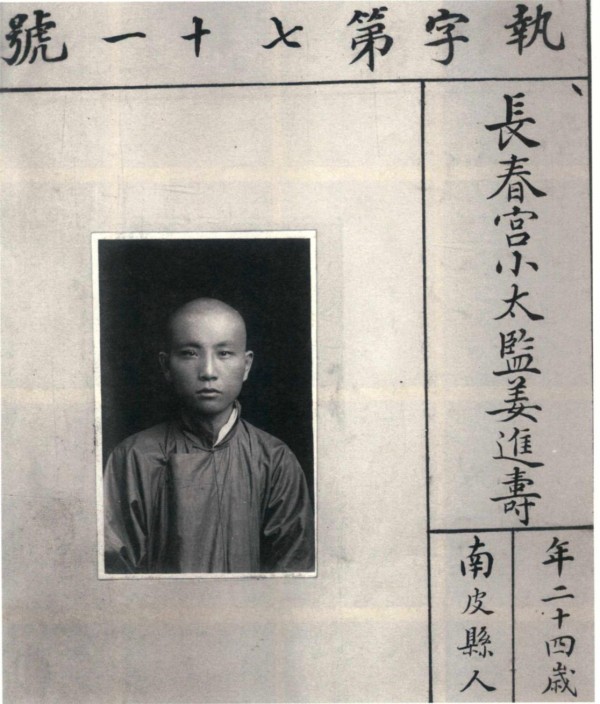 執字第七十一號
長春宮小太監姜進壽
年二十四歲
南皮縣人